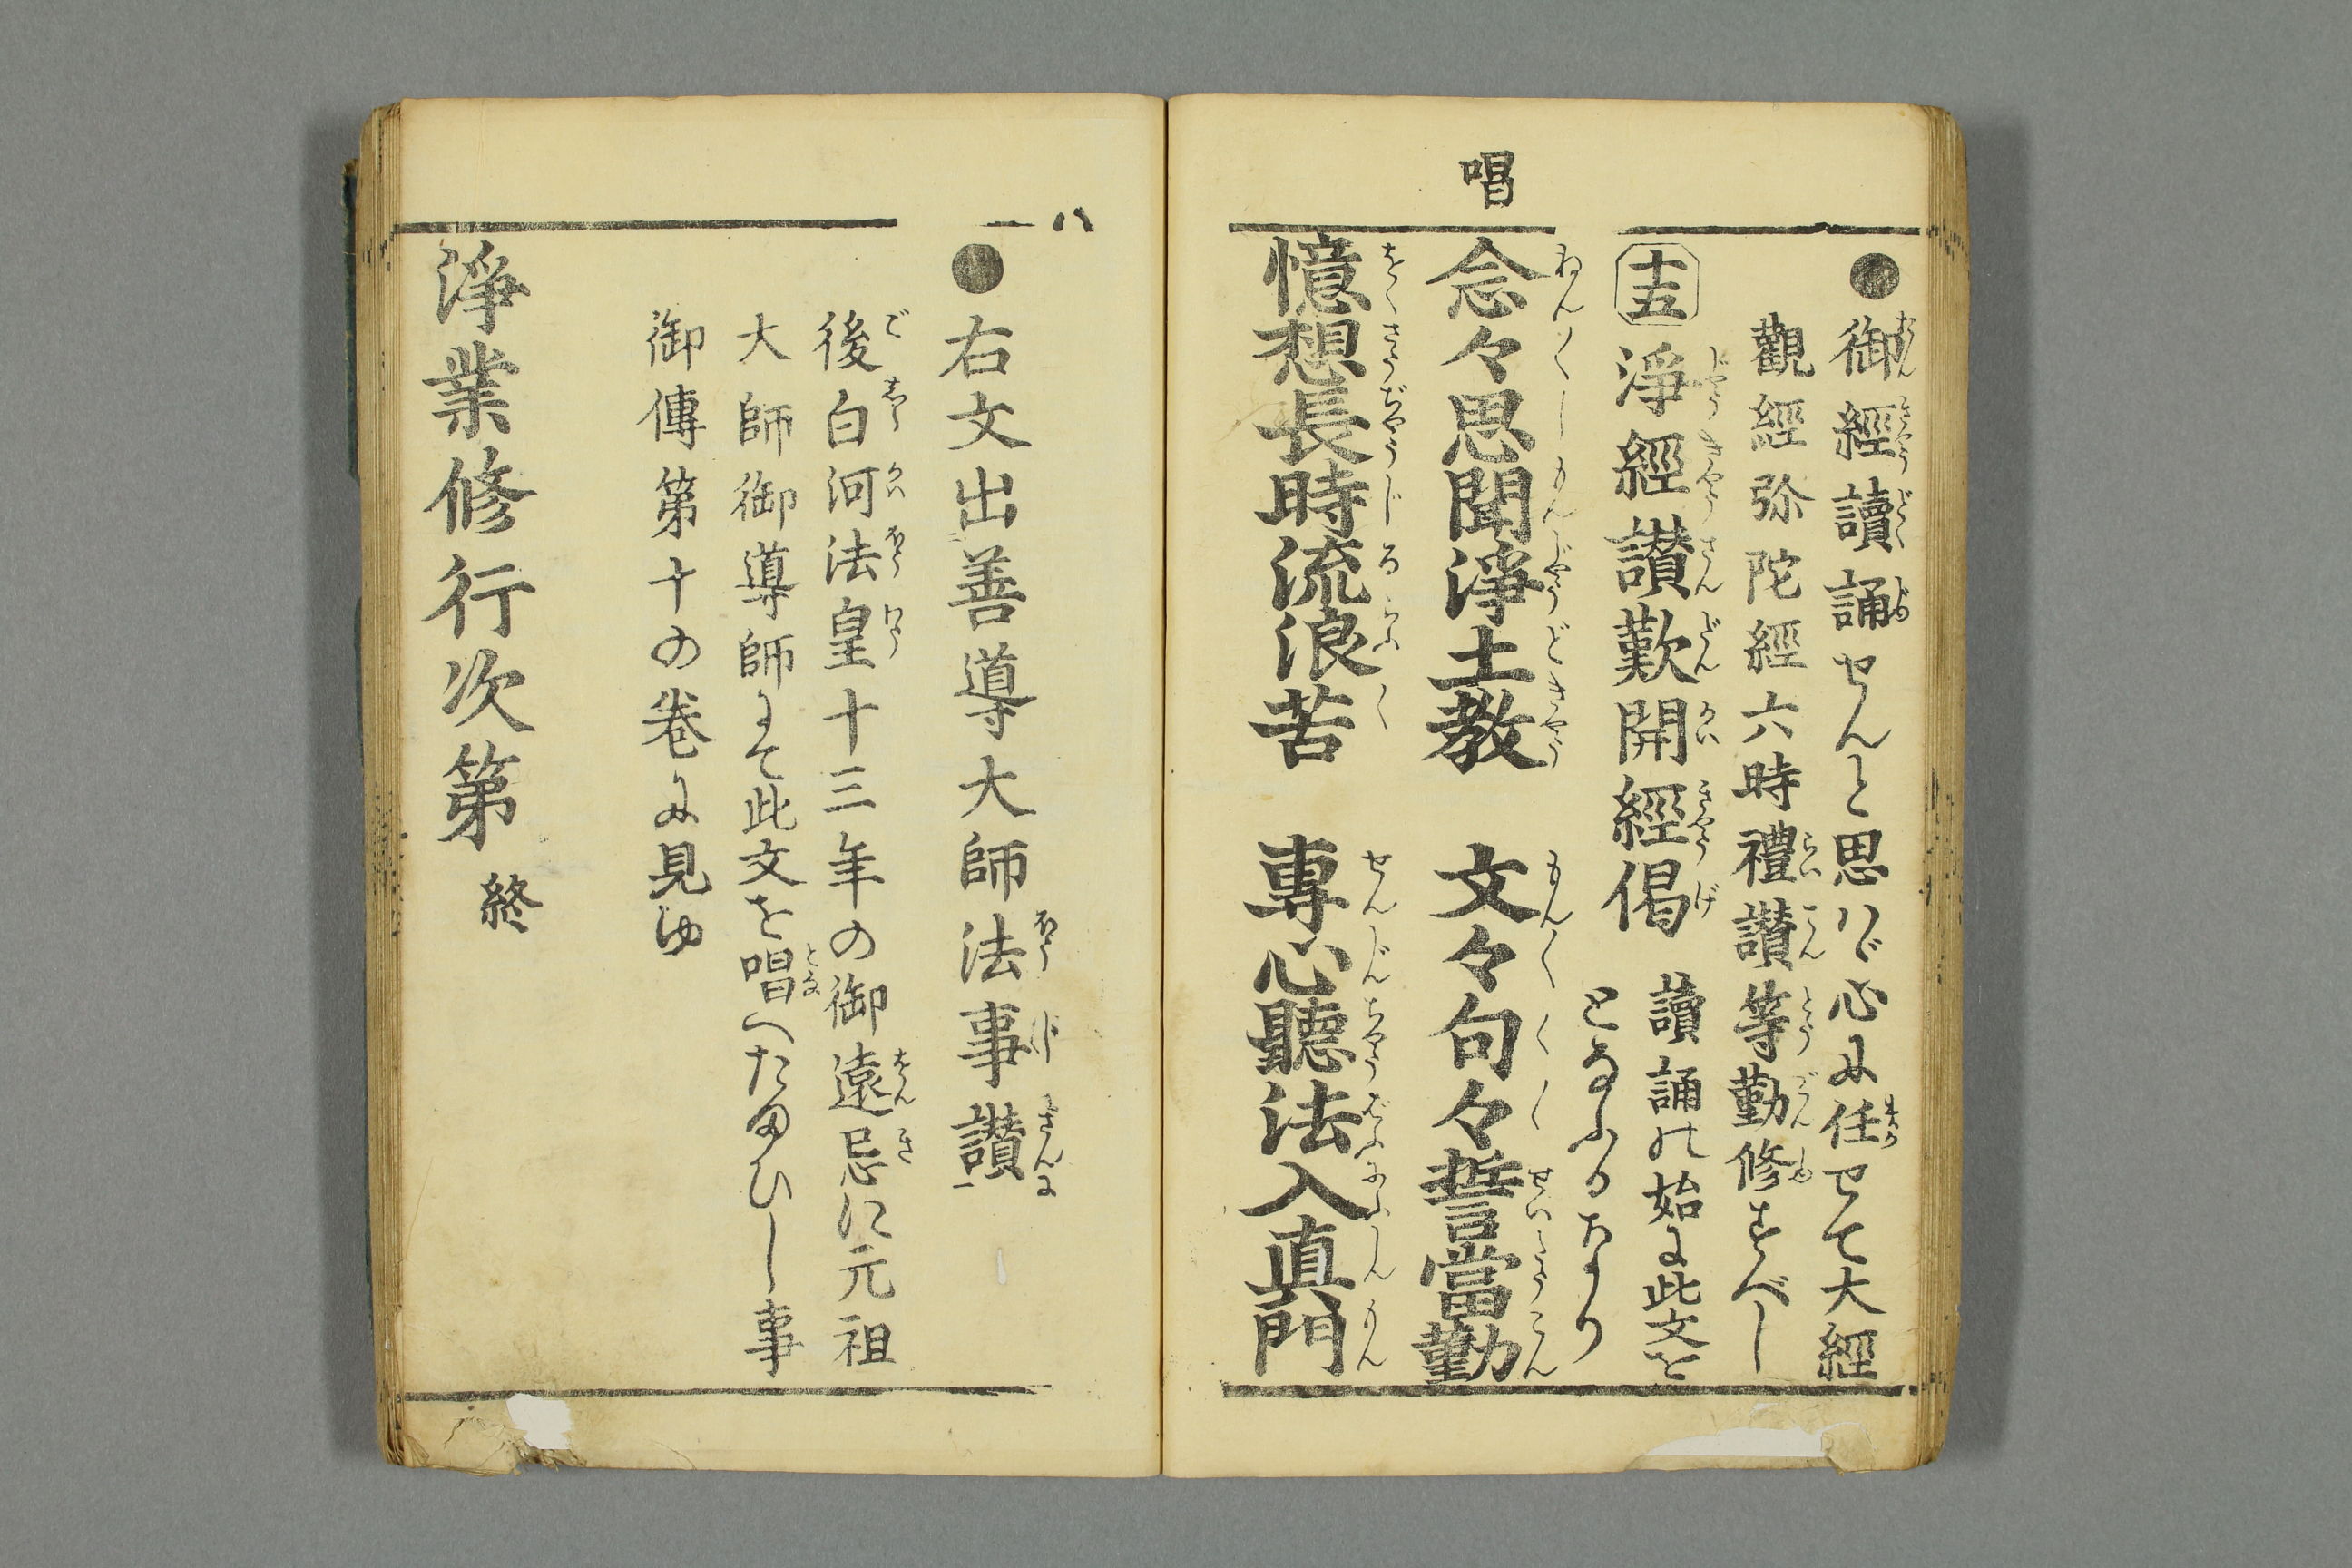 ●御經讀誦せんと思ハヾ心に任せて大經
觀經弥陀經六時禮讃等勤修すべし
十五 淨經讃歎開經偈 讀誦の始に此文を
となふるなり
唱
念々思聞淨土教 文々句々誓當勤
憶想長時流浪苦 專心聽法入眞門
八
●右文出善導大師法事讃
後白河法皇十三年の御遠忌に元祖
大師御導師にて此文を唱へたまひし事
御傳第十の巻に見ゆ
淨業修行次第 終